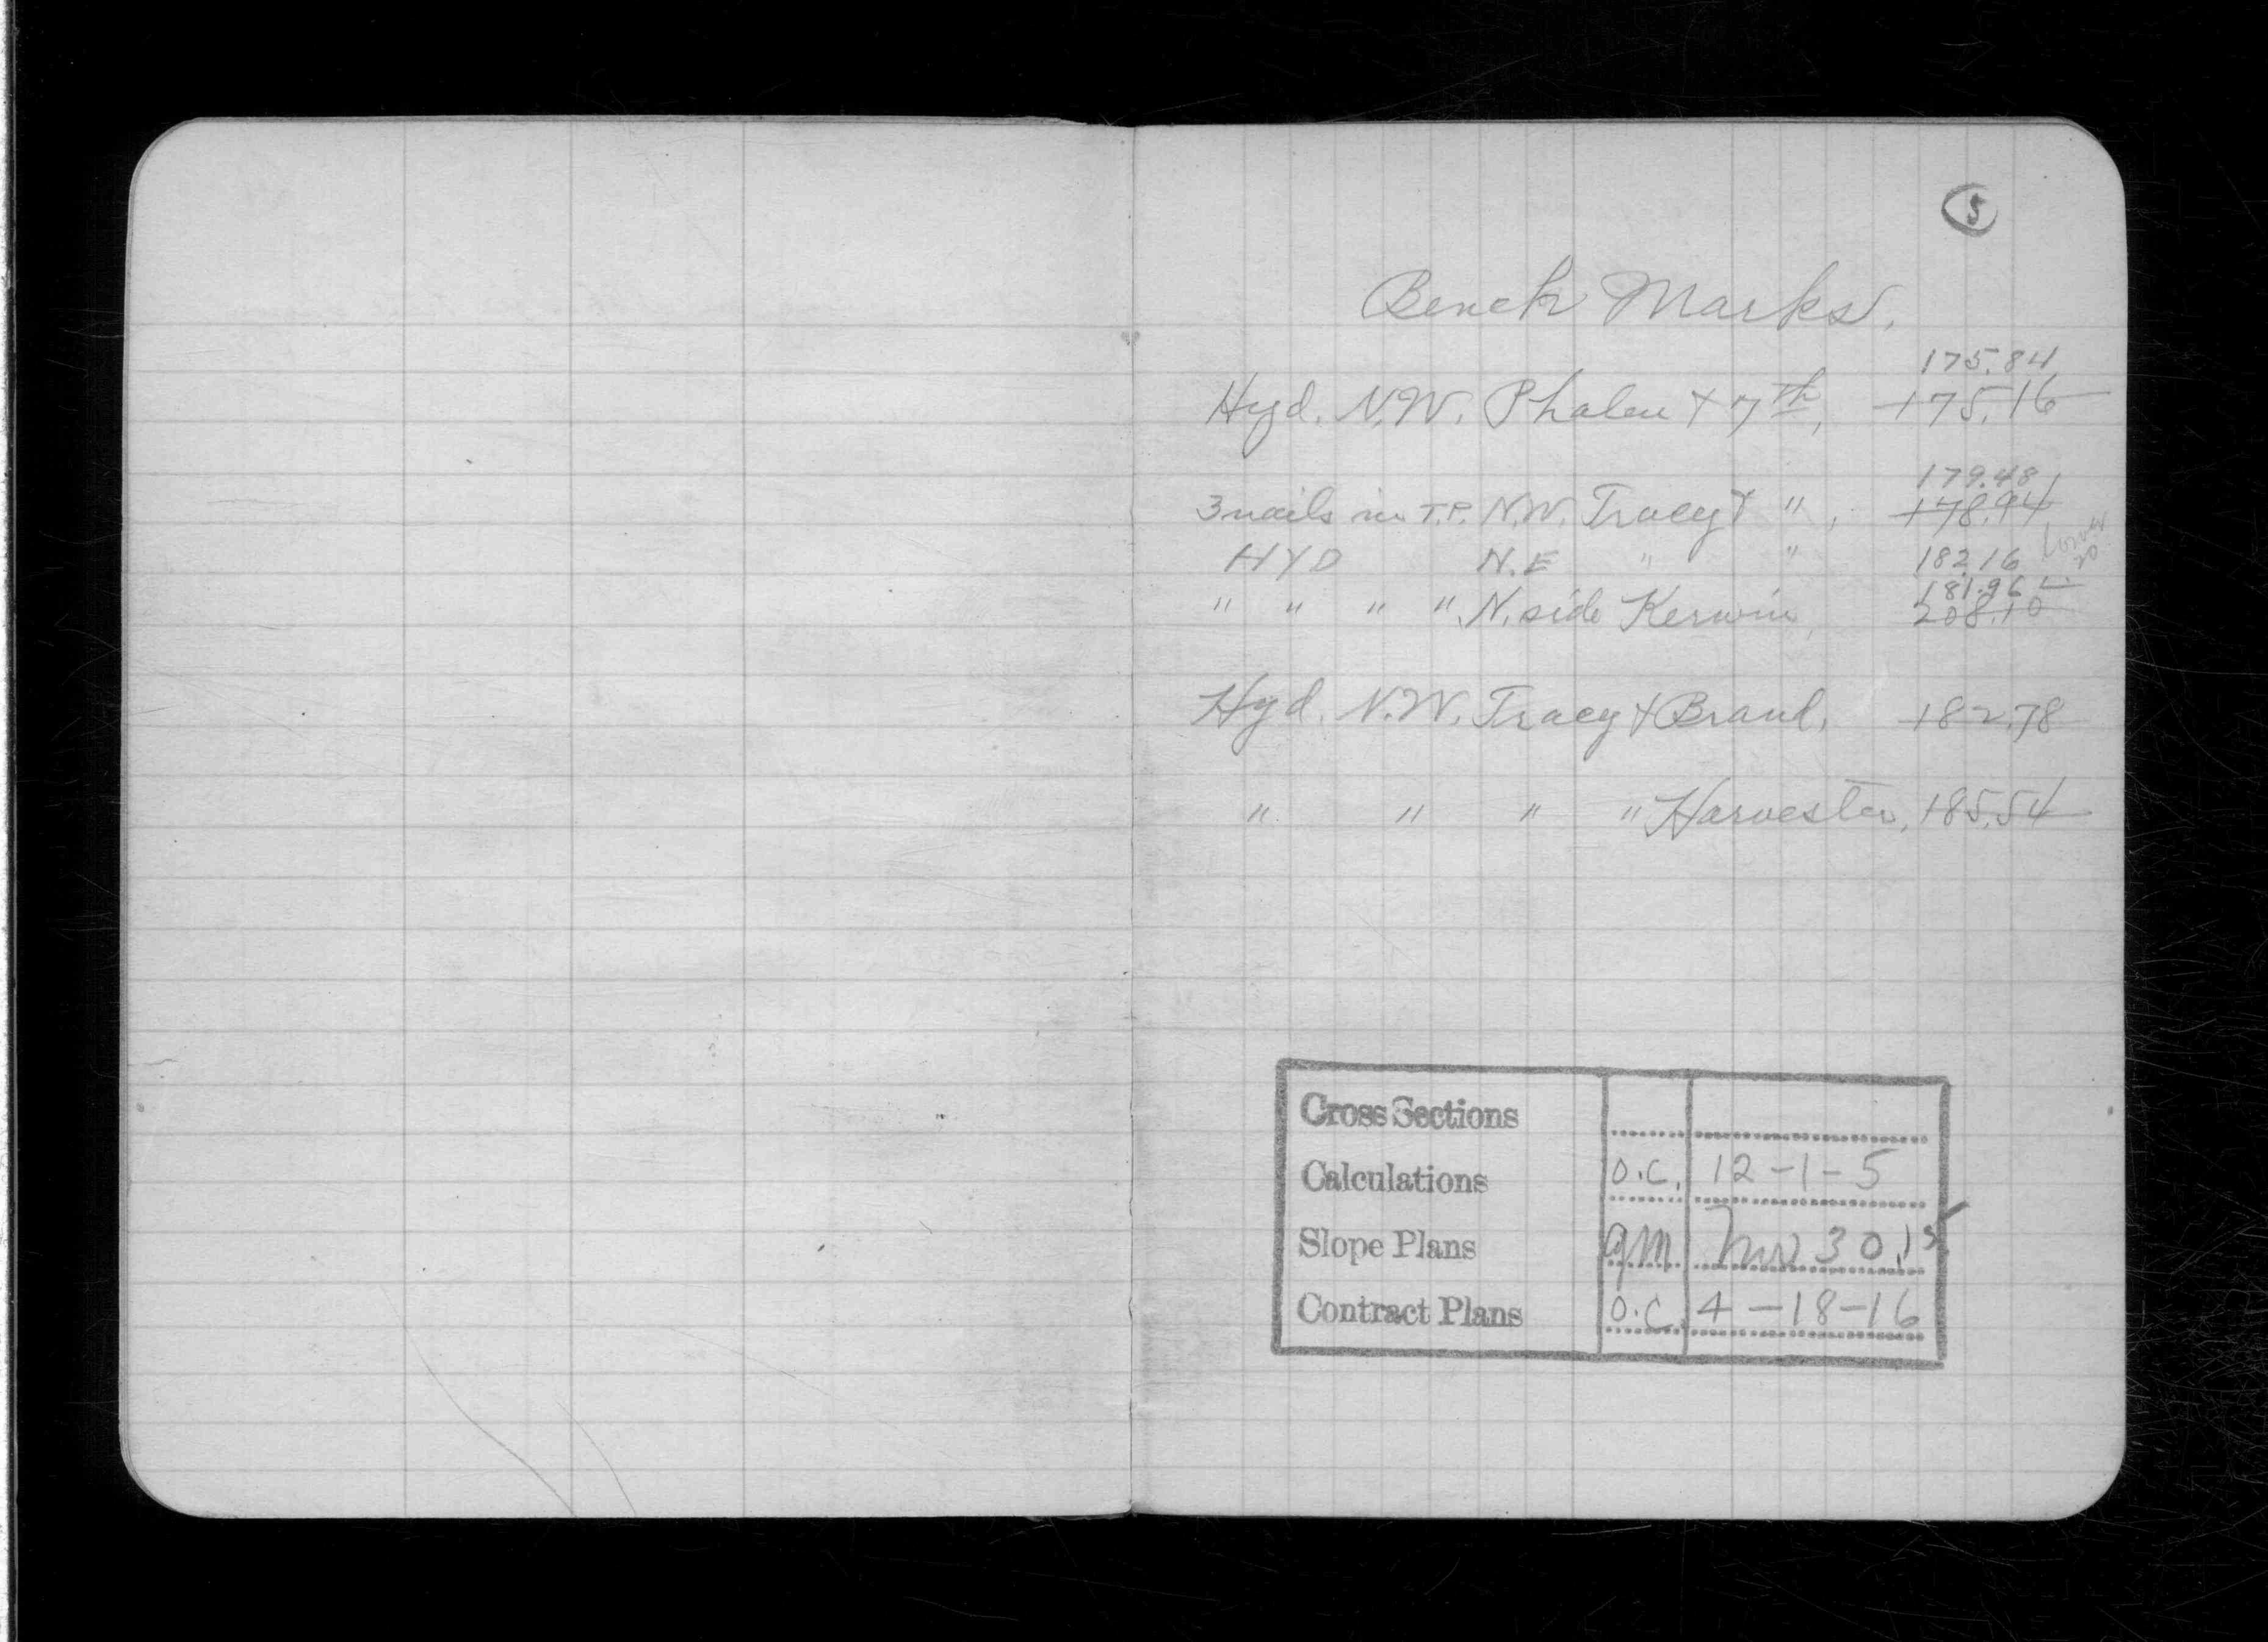 5
Bench Marks.
175.84
Hyd. N.W. Phalen + 7th, 175.16
179.48
3 nails in T.P. N.W. Tracy + ", 178.94
HYD N.E " " 182.16 lower 20
181.96
" " " " N. side Kerwin, 208.10
Hyd. N.W. Tracy + Brand, 182.78
" " " " Harvester, 185.54
Cross Sections
Calculations O.C. 12-1-5
Slope Plans Nov 30, 15
Contract Plans O.C. 4-18-16